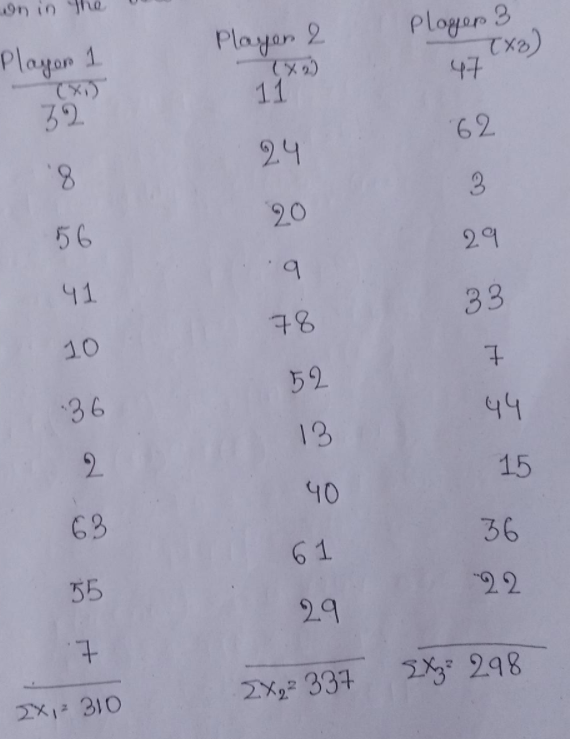 on in the
Player 1 Player 2 Player 3
(x₁) (x₂) (x₃)
32 11 47
8 24 62
56 20 3
41 9 29
10 78 33
36 52 7
2 13 44
63 40 15
55 61 36
7 29 22
Σx₁= 310 Σx₂= 337 Σx₃= 298